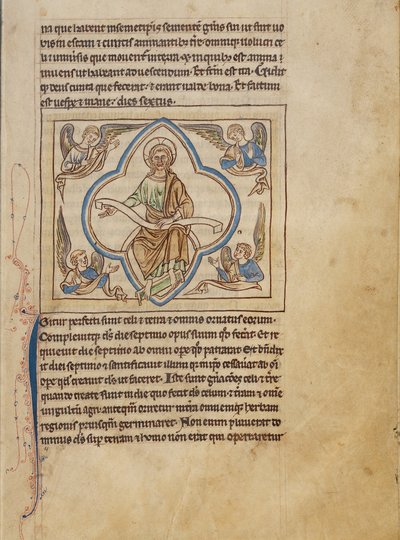 na que habent in semetipsis sementē gn̄is sui ut sint uo
bis in escam & cunctis animantibȝ tr̄e omniqȝ uolucri ce
li & uniuersis que mouent̄ in terra & in quibus est anima
uiuens ut habeant ad uescendum. Et fcm̄ est ita. Uidit
qȝ deus cuncta que fecerat & erant ualde bona. Et factum
est uespe & mane dies sextus.
Gitur perfecti sunt celi & terra & omnis ornatus eorum.
Compleuitqȝ ds̄ die septimo opus suum qd̄ fecerat. Et re
quieuit die septimo ab omni ope qd̄ patrarat. Et bn̄dix
it diei septimo & sanctificauit illum qr̄ in ip̄o cessauerat ab oī
ope qd̄ creauit ds̄ ut faceret. Iste sunt gn̄acōes celi & tr̄e
quando create sunt in die quo fecit ds̄ celum & tr̄am & om̄e
uirgultū agri antequā oriretur in tr̄a omnemqȝ herbam
regionis priusquā germinaret. Non enim pluuerat do
minus ds̄ sup terram & homo non erat qui operaretur